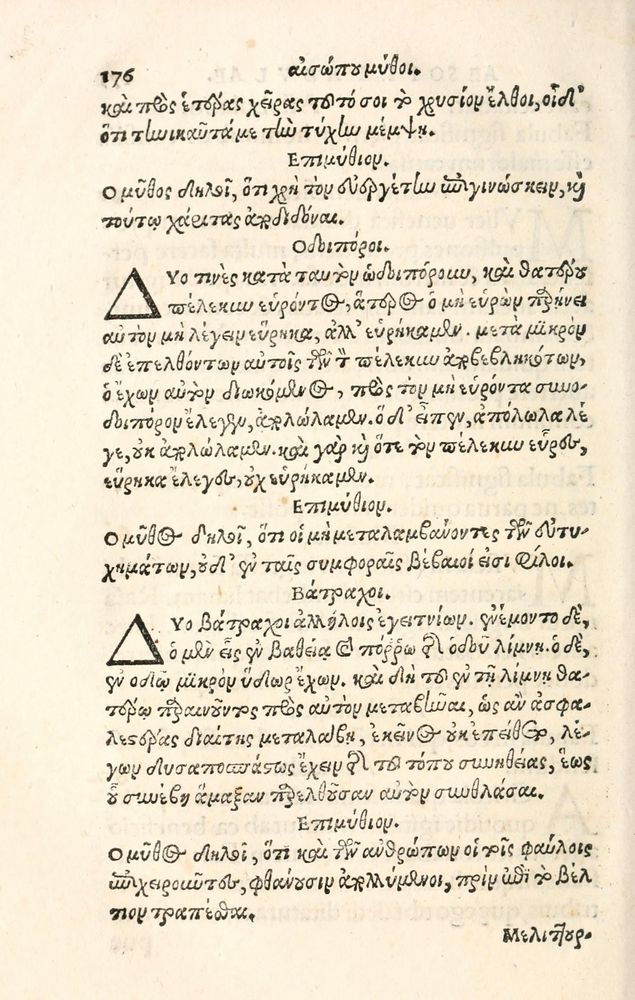 176 αἰσώπου μῦθοι.
καὶ πρὸς ἑτέρας χεῖρας τοῦτό σοι τὸ χρυσίον ἔλθοι, οἶδ'
ὅτι τηνικαῦτά με τὴν τύχην μέμψῃ.
Επιμύθιον.
Ο μῦθος δηλοῖ, ὅτι χρὴ τὸν εὐεργέτην ἐπιγινώσκειν, καὶ
τούτῳ χάριτας ἀποδιδόναι.
Οδοιπόροι.
ΔΥο τινὲς κατὰ ταυτὸν ὡδοιπόρουν, καὶ θατέρου
πέλεκυν εὑρόντος, ἅτερος ὁ μὴ εὑρὼν παρῄνει
αὐτὸν μὴ λέγειν εὕρηκα, ἀλλ' εὑρήκαμεν. μετὰ μικρὸν
δὲ ἐπελθόντων αὐτοῖς τῶν τὸν πέλεκυν ἀποβεβληκότων,
ὁ ἔχων αὐτὸν διωκόμενος, πρὸς τὸν μὴ εὑρόντα συνο-
δοιπόρον ἔλεγεν, ἀπολώλαμεν. ὁ δ' εἶπεν, ἀπόλωλα λέ
γε, οὐκ ἀπολώλαμεν. καὶ γὰρ καὶ ὅτε τὸν πέλεκυν εὗρες,
εὕρηκα ἔλεγες, οὐχ εὑρήκαμεν.
Επιμύθιον.
Ο μῦθος δηλοῖ, ὅτι οἱ μὴ μεταλαμβάνοντες τῶν εὐτυ-
χημάτων, οὐδ' ἐν ταῖς συμφοραῖς βέβαιοί εἰσι φίλοι.
Βάτραχοι.
ΔΥο βάτραχοι ἀλλήλοις ἐγειτνίων. ἐνέμοντο δὲ,
ὁ μὲν εἷς ἐν βαθείᾳ καὶ πόῤῥω τῆς ὁδοῦ λίμνῃ. ὁ δὲ,
ἐν ὁδῷ μικρὸν ὕδωρ ἔχων. καὶ δὴ τοῦ ἐν τῇ λίμνῃ θα-
τέρῳ παραινοῦντος πρὸς αὐτὸν μεταβῆναι, ὡς ἂν ἀσφα-
λεστέρας διαίτης μεταλάβῃ, ἐκεῖνος οὐκ ἐπείθετο, λέ-
γων δυσαποσπάστως ἔχειν τῆς τοῦ τόπου συνηθείας, ἕως
οὗ συνέβη ἅμαξαν παρελθοῦσαν αὐτὸν συνθλάσαι.
Επιμύθιον.
Ο μῦθος δηλοῖ, ὅτι καὶ τῶν ἀνθρώπων οἱ τοῖς φαύλοις
ἐπιχειροῦντες, φθάνουσιν ἀπολλύμενοι, πρὶν ἐπὶ τὸ βέλ
τιον τραπέσθαι.
Μελιττουρ-